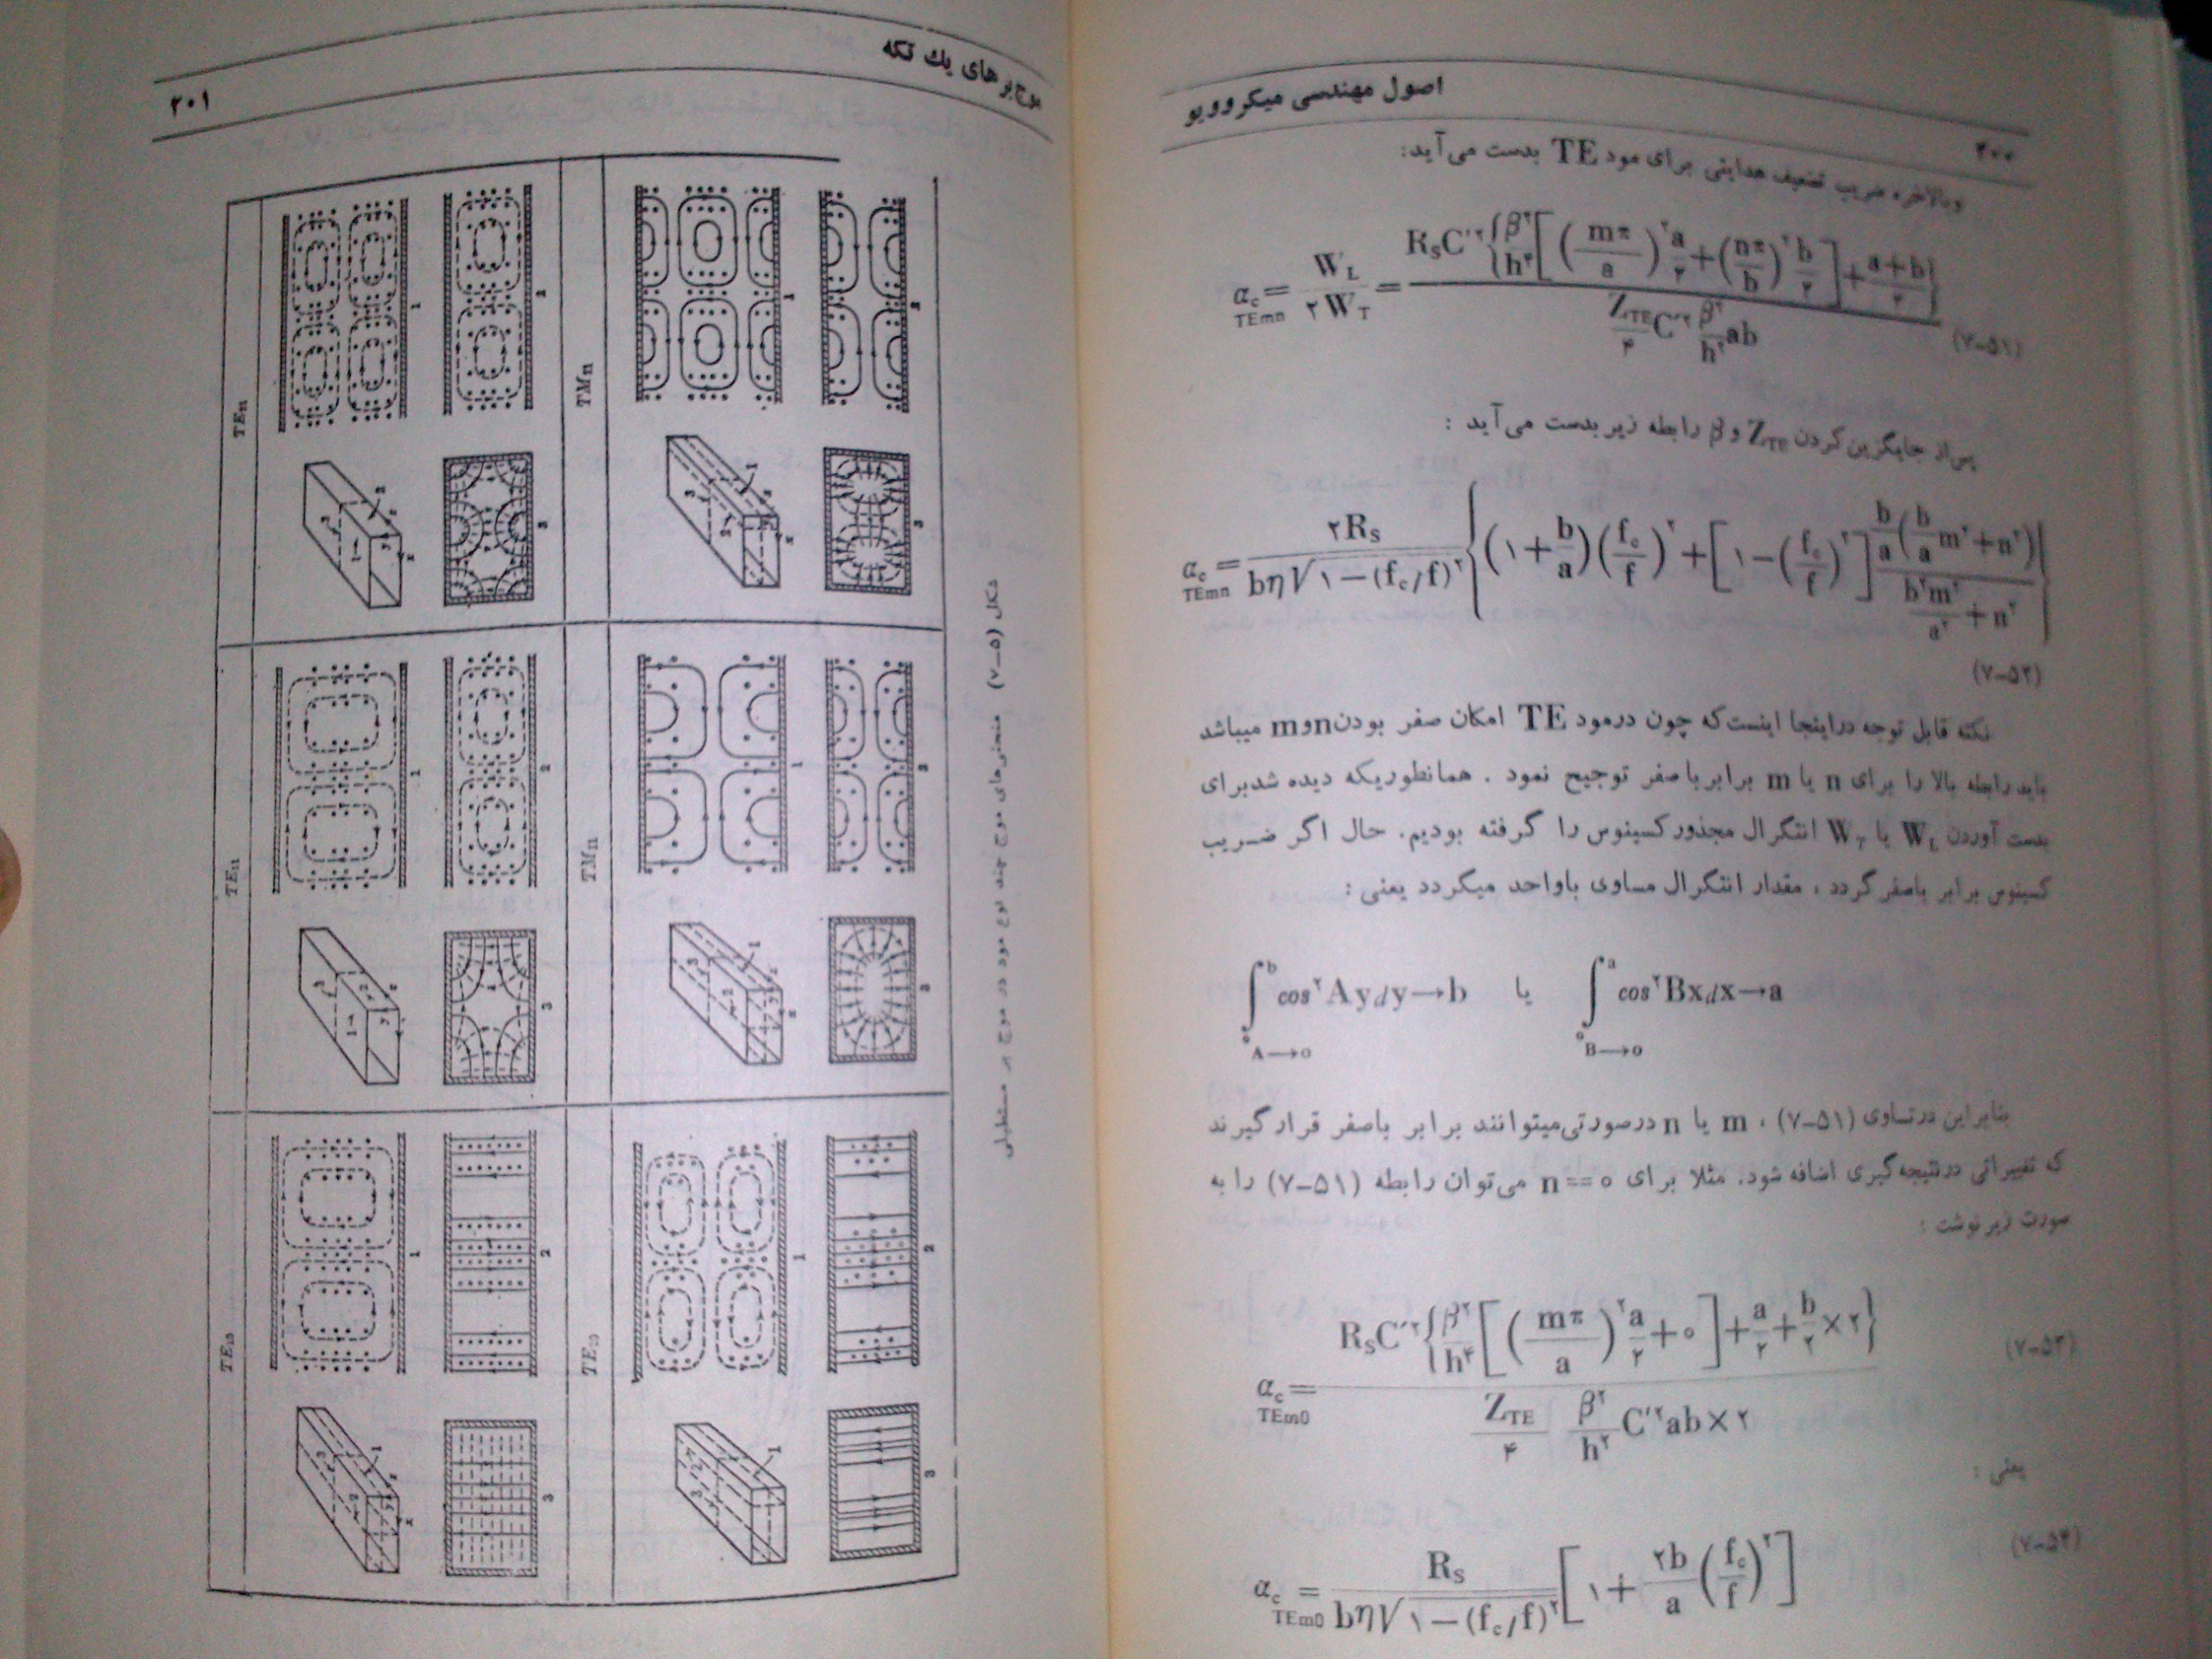 اصول مهندسی میکروویو
۲۰۰
وبالاخره ضریب تضعیف هدایتی برای مود TE بدست می‌آید:
α_c TEmn = W_L / ۲W_T = R_s C'^۲ {β^۲/h^۴ [(mπ/a)^۲ a/۲ + (nπ/b)^۲ b/۲] + (a+b)/۲} / (Z_TE/۴ C'^۲ β^۲/h^۲ ab)
(۷–۵۱)
پس‌از جایگزین کردن Z_TE و β رابطه زیر بدست می‌آید :
α_c TEmn = ۲R_s / bη√۱−(f_c/f)^۲ {(۱+b/a)(f_c/f)^۲ + [۱−(f_c/f)^۲] b/a(b/a m^۲+n^۲) / (b^۲m^۲/a^۲ + n^۲)}
(۷–۵۲)
نکته قابل توجه دراینجا اینست‌که چون درمود TE امکان صفر بودن nو m میباشد
باید رابطه بالا را برای n یا m برابر با صفر توجیح نمود . همانطوریکه دیده شدبرای
بدست آوردن W_L یا W_T انتگرال مجذور کسینوس را گرفته بودیم. حال اگر ضریب
کسینوس برابر باصفر گردد ، مقدار انتگرال مساوی باواحد میگردد یعنی :
∫₀^b cos^۲ Aydy→b یا ∫₀^a cos^۲ Bxdx→a
A→۰ B→۰
بنابراین درتساوی (۷–۵۱) ، m یا n درصورتی‌میتوانند برابر باصفر قرار گیرند
که تغییراتی درنتیجه گیری اضافه شود. مثلا برای n = ۰ می‌توان رابطه (۷–۵۱) را به
صورت زیر نوشت :
α_c TEm0 = R_s C'^۲ {β^۲/h^۴ [(mπ/a)^۲ a/۲ + ۰] + a/۲ + b/۲ ×۲} / (Z_TE/۴ β^۲/h^۲ C'^۲ ab×۲)
(۷–۵۳)
یعنی :
α_c TEm0 = R_s / bη√۱−(f_c/f)^۲ [۱ + ۲b/a (f_c/f)^۲]
(۷–۵۴)
موج‌بر های یك تکه
۲۰۱
TE₂₁
TM₂₁
TE₁₁
TM₁₁
TE₁₀
TE₂₀
شکل (۵–۷) منحنی‌های موج چند نوع مود در موج بر مستطیلی